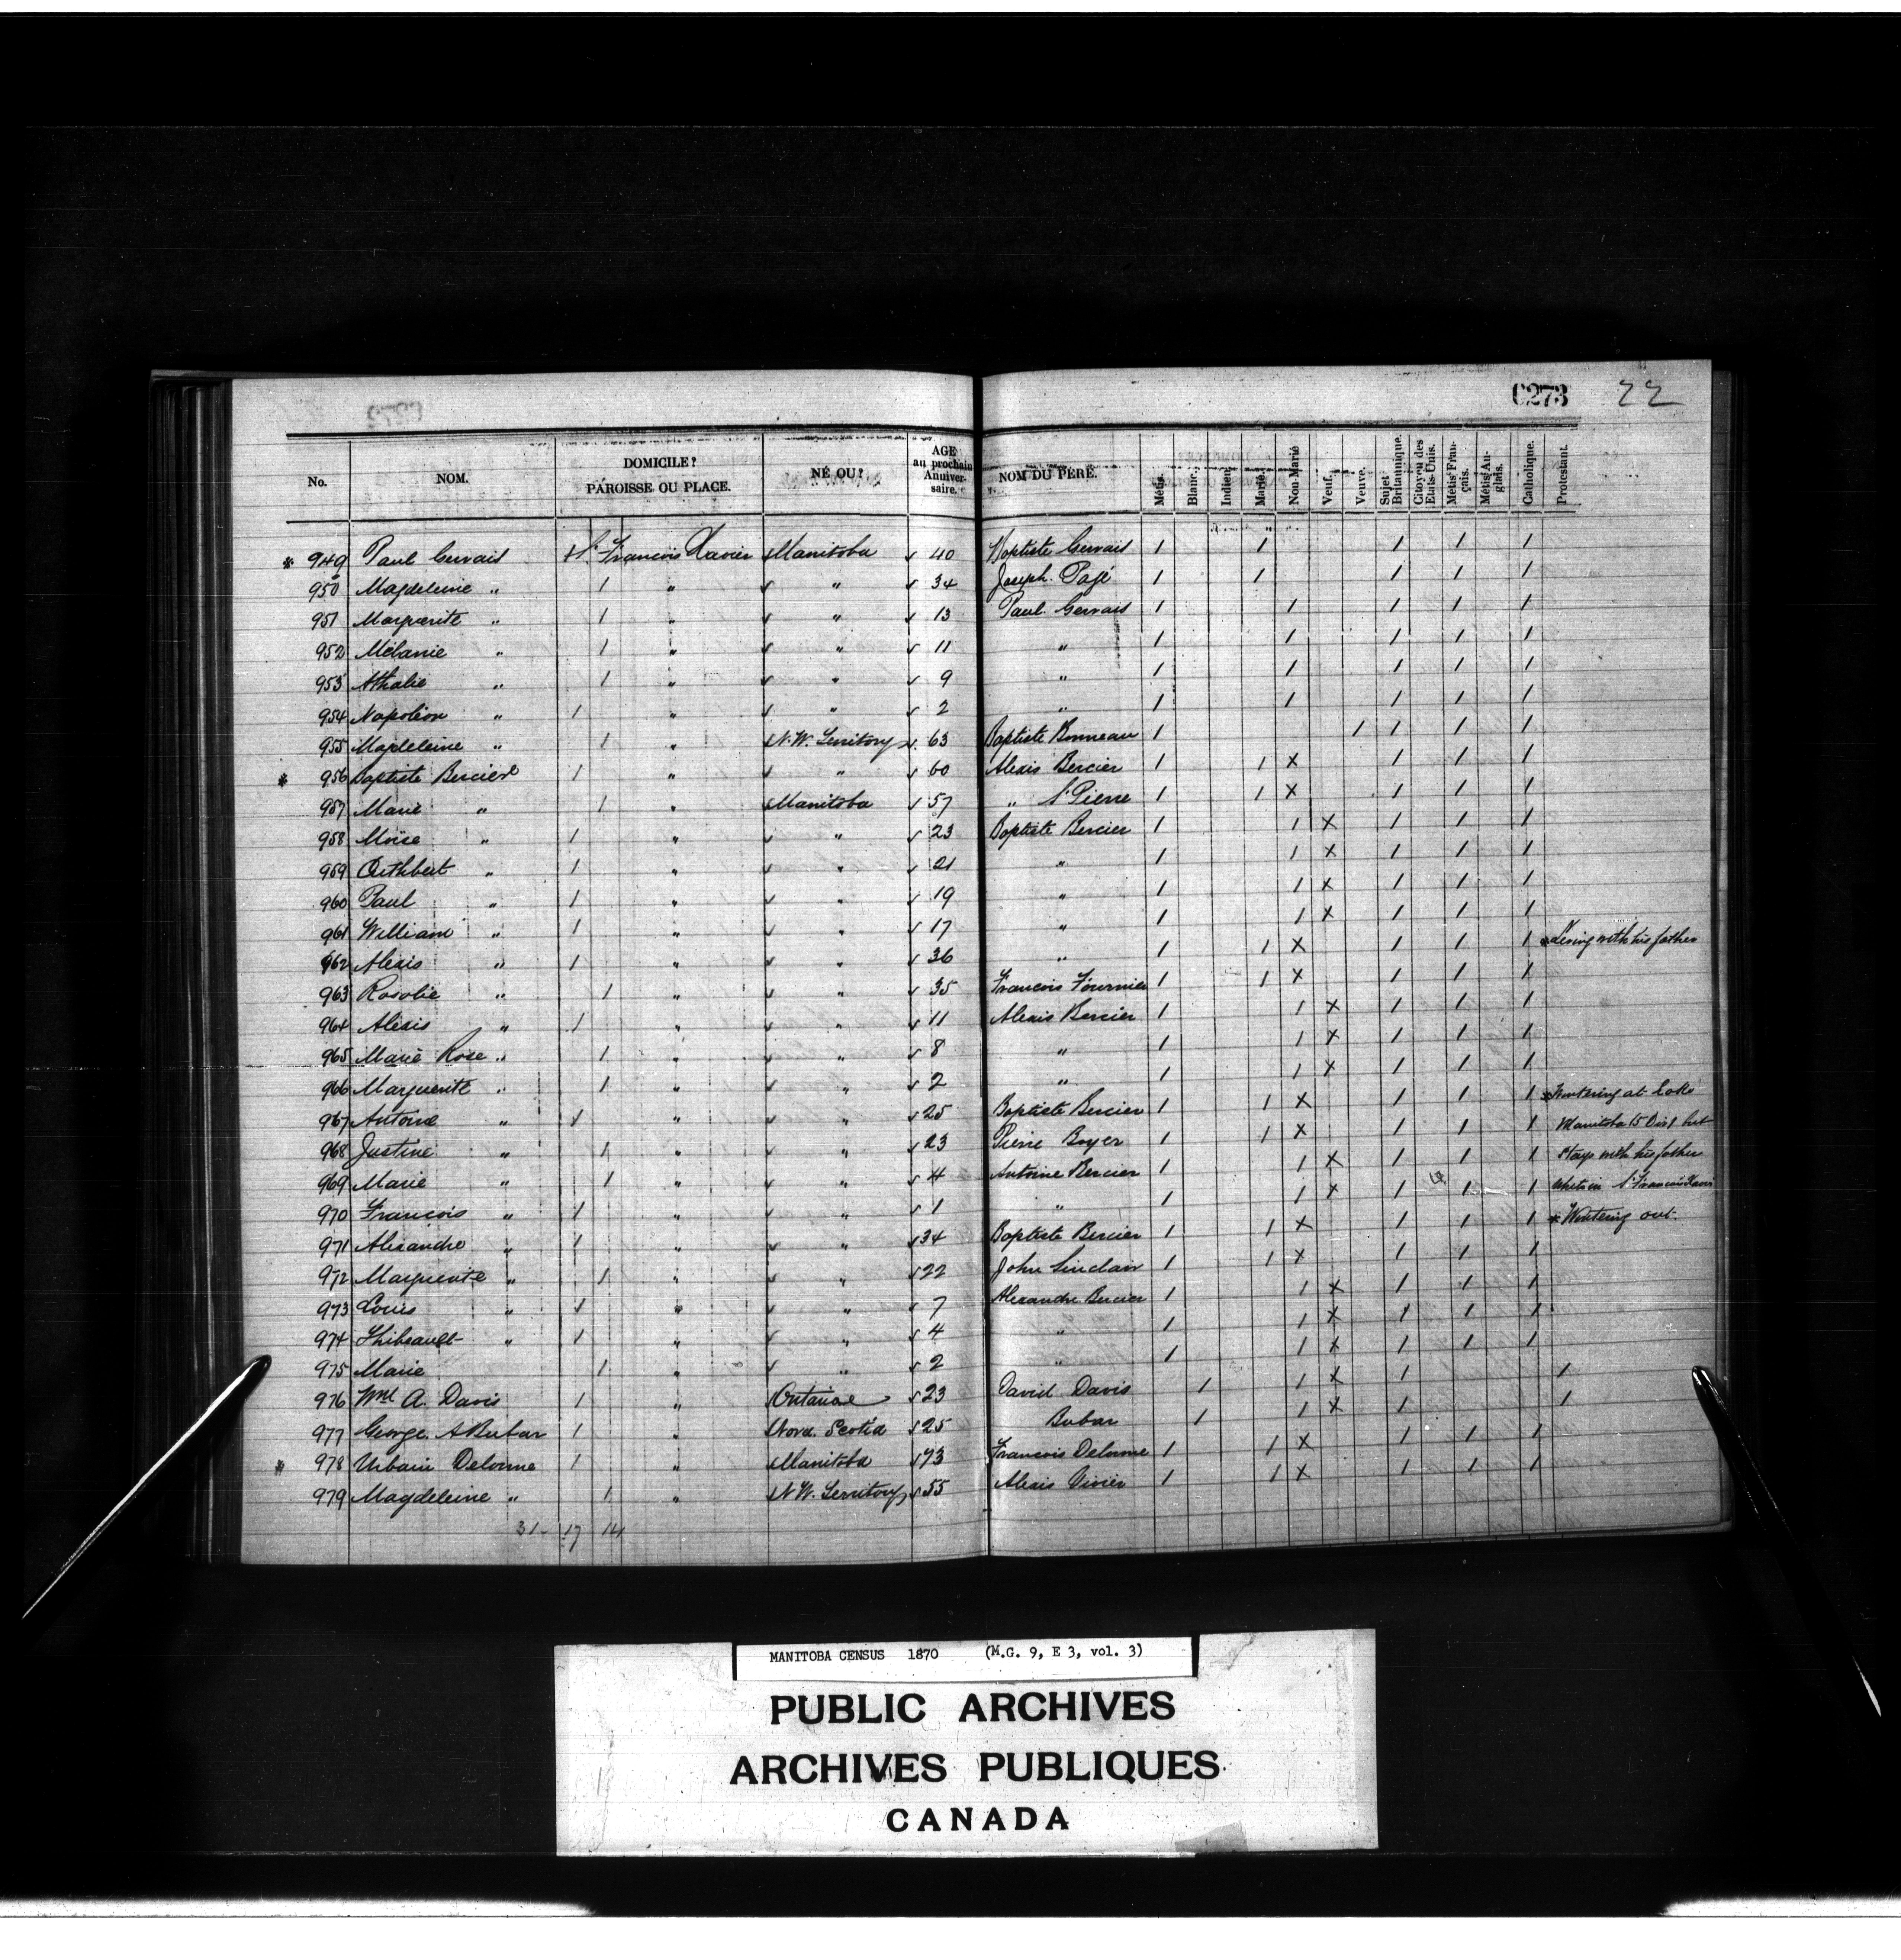 C273 22
No. NOM. DOMICILE? PAROISSE OU PLACE. NÉ OU? AGE au prochain Anniversaire. NOM DU PÈRE. Métis. Blanc. Indien. Marié. Non-Marié Veuf. Veuve. Sujet Britannique. Citoyen des Etats-Unis. Métis Français. Métis Anglais. Catholique. Protestant.
* 949 Paul Gervais St. Francois Xavier Manitoba 40 Baptiste Gervais 1 1 1 1 1
950 Magdeleine " 1 " " 34 Joseph Pagé 1 1 1 1 1
951 Marguerite " 1 " " 13 Paul Gervais 1 1 1 1 1
952 Mélanie " 1 " " 11 " 1 1 1 1 1
953 Athalie " 1 " " 9 " 1 1 1 1 1
954 Napoléon " 1 " " 2 " 1 1 1 1 1
955 Magdeleine " 1 " N.W. Territory 63 Baptiste Bonneau 1 1 1 1 1
* 956 Baptiste Bercier 1 " " 60 Alexis Bercier 1 1 X 1 1 1
957 Marie " 1 " Manitoba 57 " St Pierre 1 1 X 1 1 1
958 Moïse " 1 " " 23 Baptiste Bercier 1 1 X 1 1 1
959 Cuthbert " 1 " " 21 " 1 1 X 1 1 1
960 Paul " 1 " " 19 " 1 1 X 1 1 1
961 William " 1 " " 17 " 1 1 X 1 1 1
962 Alexis " 1 " " 36 " 1 1 X 1 1 1 * Living with his father
963 Rosalie " 1 " " 35 Francois Fournier 1 1 X 1 1 1
964 Alexis " 1 " " 11 Alexis Bercier 1 1 X 1 1 1
965 Marie Rose " 1 " " 8 " 1 1 X 1 1 1
966 Marguerite " 1 " " 2 " 1 1 X 1 1 1
967 Antoine " 1 " " 25 Baptiste Bercier 1 1 X 1 1 1 * Wintering at Lake
968 Justine " 1 " " 23 Pierre Boyer 1 1 X 1 1 1 Manitoba 15 Dist but
969 Marie " 1 " " 4 Antoine Bercier 1 1 X 1 1 1 Stays with his father
970 Francois " 1 " " 1 " 1 1 X 1 1 1 when in St Francois Xavier
971 Alexandre " 1 " " 34 Baptiste Bercier 1 1 X 1 1 1 * Wintering out.
972 Marguerite " 1 " " 22 John Sinclair 1 1 X 1 1 1
973 Louis " 1 " " 7 Alexandre Bercier 1 1 X 1 1 1
974 Thibeault " 1 " " 4 " 1 1 X 1 1 1
975 Marie 1 " " 2 " 1 1 X 1 1 1
976 Wm A. Davis 1 " Ontario 23 David Davis 1 1 X 1 1
977 George A Bubar 1 " Nova Scotia 25 Bubar 1 1 X 1 1
* 978 Urbain Delorme 1 " Manitoba 73 Francois Delorme 1 1 X 1 1 1
979 Magdeleine " 1 " N.W. Territory 55 Alexis Vivier 1 1 X 1 1 1
31 - 17 14
MANITOBA CENSUS 1870 (M.G. 9, E 3, vol. 3)
PUBLIC ARCHIVES
ARCHIVES PUBLIQUES
CANADA